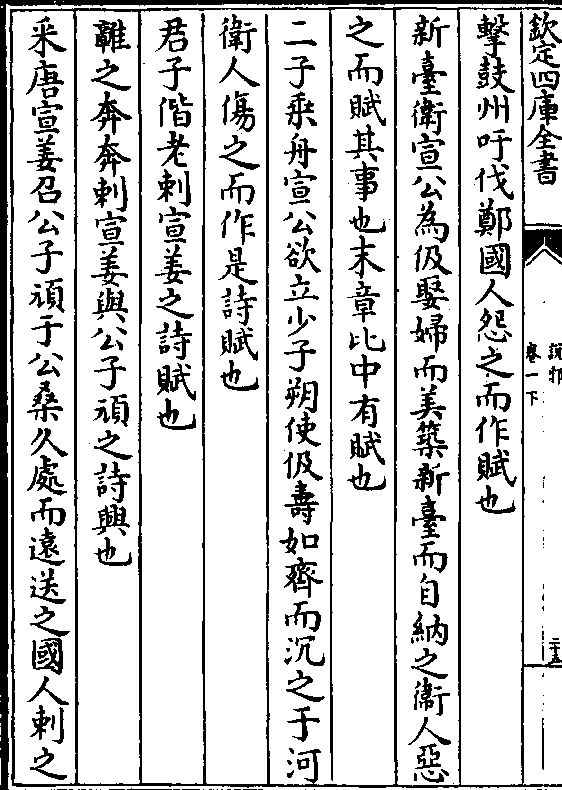 欽定四庫全書
說郛
卷一下
二十五
擊鼓州吁伐鄭國人怨之而作賦也
新臺衛宣公為伋娶婦而美築新臺而自納之衞人惡
之而賦其事也末章比中有賦也
二子乗舟宣公欲立少子朔使伋壽如齊而沉之于河
衛人傷之而作是詩賦也
君子偕老刺宣姜之詩賦也
鶉之奔奔刺宣姜與公子頑之詩興也
采唐宣姜召公子頑于公桑久處而遠送之國人刺之